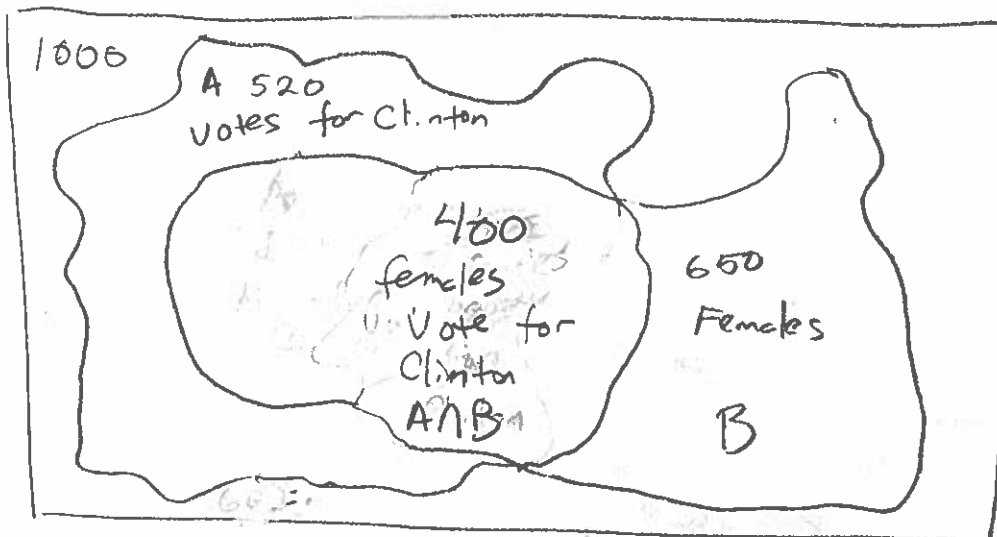 1000
A 520
votes for Clinton
400
females
Vote for
Clinton
A∩B
650
Females
B